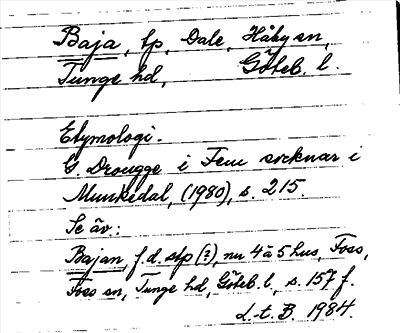 Baja, tp, Dale, Håby sn,
Tunge hd, Göteb. l.
Etymologi.
G. Drougge i Fem socknar i
Munkedal, (1980), s. 215.
Se äv:
Bajan, f.d. stp (?), nu 4 à 5 hus, Foss,
Foss sn, Tunge hd, Göteb. l., s. 157 f.
L.t.B. 1984.